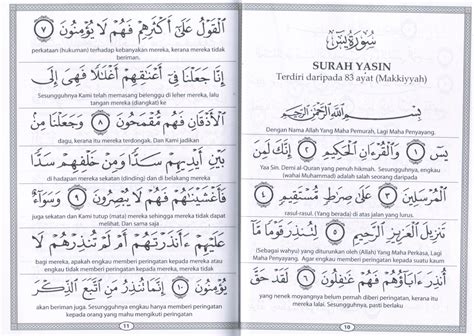 سُورَةُ يسٓ
SURAH YASIN
Terdiri daripada 83 ayat (Makkiyyah)
بِسْمِ اللَّهِ الرَّحْمَٰنِ الرَّحِيمِ
Dengan Nama Allah Yang Maha Pemurah, Lagi Maha Penyayang.
يسٓ ۝١ وَٱلْقُرْءَانِ ٱلْحَكِيمِ ۝٢ إِنَّكَ لَمِنَ
Yaa Sin. Demi al-Quran yang penuh hikmah. Sesungguhnya, engkau
(wahai Muhammad) adalah seorang daripada
ٱلْمُرْسَلِينَ ۝٣ عَلَىٰ صِرَٰطٍ مُّسْتَقِيمٍ ۝٤
rasul-rasul. (Yang berada) di atas jalan yang lurus.
تَنزِيلَ ٱلْعَزِيزِ ٱلرَّحِيمِ ۝٥ لِتُنذِرَ قَوْمًا مَّآ
(Sebagai wahyu) yang diturunkan oleh (Allah) Yang Maha Perkasa, Lagi Maha
Penyayang. Agar engkau memberi peringatan kepada kaum
أُنذِرَ ءَابَآؤُهُمْ فَهُمْ غَٰفِلُونَ ۝٦ لَقَدْ حَقَّ
yang nenek moyangnya belum pernah diberi peringatan, kerana mereka
itu lalai. Sesungguhnya, pasti berlaku
10
ٱلْقَوْلُ عَلَىٰٓ أَكْثَرِهِمْ فَهُمْ لَا يُؤْمِنُونَ ۝٧
perkataan (hukuman) terhadap kebanyakan mereka, kerana mereka tidak
beriman.
إِنَّا جَعَلْنَا فِىٓ أَعْنَٰقِهِمْ أَغْلَٰلًا فَهِىَ إِلَى
Sesungguhnya Kami telah memasang belenggu di leher mereka, lalu
tangan mereka (diangkat) ke
ٱلْأَذْقَانِ فَهُم مُّقْمَحُونَ ۝٨ وَجَعَلْنَا مِنۢ
dagu, kerana itu mereka terdongak. Dan Kami jadikan
بَيْنِ أَيْدِيهِمْ سَدًّا وَمِنْ خَلْفِهِمْ سَدًّا
di hadapan mereka sekatan (dinding) dan di belakang mereka
فَأَغْشَيْنَٰهُمْ فَهُمْ لَا يُبْصِرُونَ ۝٩ وَسَوَآءٌ
juga sekatan dan Kami tutup (mata) mereka sehingga mereka tidak dapat
melihat. Dan sama saja
عَلَيْهِمْ ءَأَنذَرْتَهُمْ أَمْ لَمْ تُنذِرْهُمْ لَا
bagi mereka, apakah engkau memberi peringatan kepada mereka atau
engkau tidak memberi peringatan kepada mereka, mereka tidak
يُؤْمِنُونَ ۝١٠ إِنَّمَا تُنذِرُ مَنِ ٱتَّبَعَ ٱلذِّكْرَ
akan beriman juga. Sesungguhnya, engkau hanya memberi peringatan
kepada orang yang mahu mengikuti peringatan
11